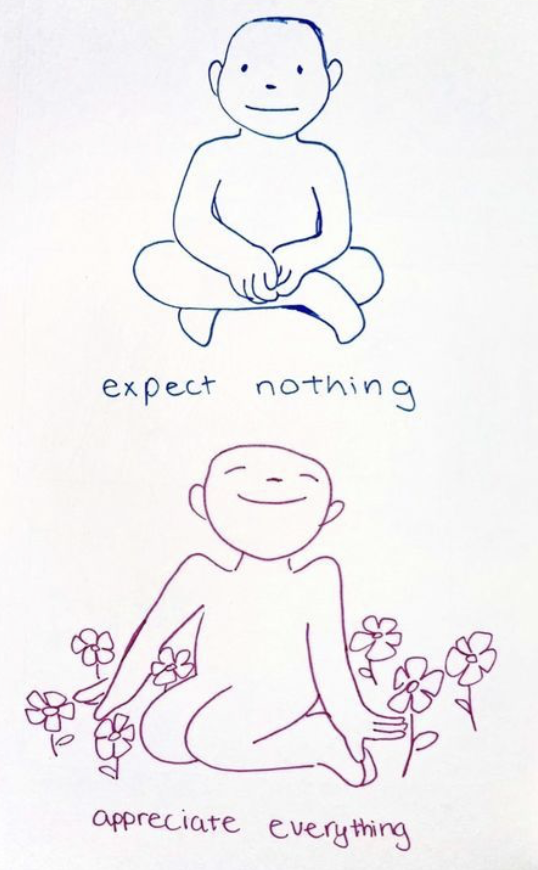 expect nothing
appreciate everything